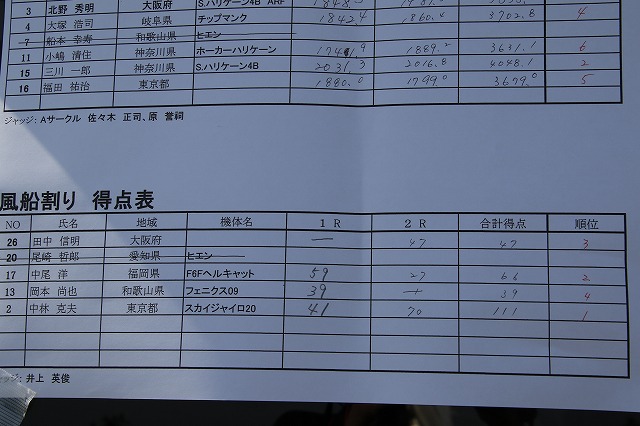 3 北野 秀明 大阪府 S.ハリケーン4B ARF 4
4 大塚 浩司 岐阜県 チップマンク 1842.4 1860.4 3702.8
7 船本 幸寿 和歌山県 ヒエン
11 小嶋 清住 神奈川県 ホーカーハリケーン 1741.9 1889.2 3631.1 6
15 三川 一郎 神奈川県 S.ハリケーン4B 2031.3 2016.8 4048.1 2
16 福田 祐治 東京都 1880.0 1799.0 3679.0 5
ジャッジ: Aサークル 佐々木 正司、原 誉嗣
風船割り 得点表
NO 氏名 地域 機体名 1 R 2 R 合計得点 順位
26 田中 信明 大阪府 — 47 47 3
20 尾崎 哲郎 愛知県 ヒエン
17 中尾 洋 福岡県 F6Fヘルキャット 27 2
13 岡本 尚也 和歌山県 フェニクス09 39 — 39 4
2 中林 克夫 東京都 スカイジャイロ20 41 70 111 1
ッジ: 井上 英俊